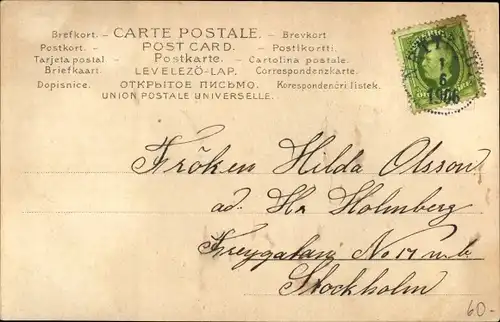 Brefkort. - CARTE POSTALE. - Brevkort
Postkort. - POST CARD. - Postikortti.
Tarjeta postal - Postkarte. - Cartolina postale.
Briefkaart. LEVELEZÖ-LAP. Correspondenzkarte.
Dopisnice. ОТКРЫТОЕ ПИСЬМО. Korespondenčri listek.
UNION POSTALE UNIVERSELLE.
1
6
1906
Fröken Hilda Olsson
ad. Hr Holmberg
Freygatan No 17 n.b.
Stockholm
60-